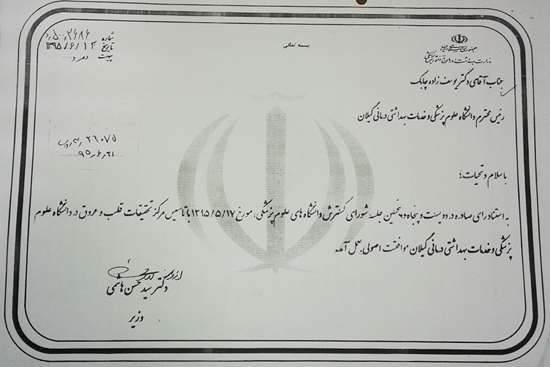 بسمه تعالی
شماره ۵۰۲۶۸۶/د
تاریخ ۱۳۹۵/۶/۱۳
پیوست ندارد
جمهوری اسلامی ایران
وزارت بهداشت، درمان و آموزش پزشکی
جناب آقای دکتر یوسف زاده چابک
رئیس محترم دانشگاه علوم پزشکی و خدمات بهداشتی درمانی گیلان
۲۶۰۷۵
۹۵,۶,۲۱
با سلام و تحیات؛
به استناد رای صادره در دویست و پنجاه و پنجمین جلسه شورای گسترش دانشگاه های علوم پزشکی، مورخ ۱۳۹۵/۵/۱۷ با تاسیس مرکز تحقیقات قلب و عروق در دانشگاه علوم
پزشکی و خدمات بهداشتی درمانی گیلان موافقت اصولی بعمل آمد.
دکتر سید حسن هاشمی
وزیر